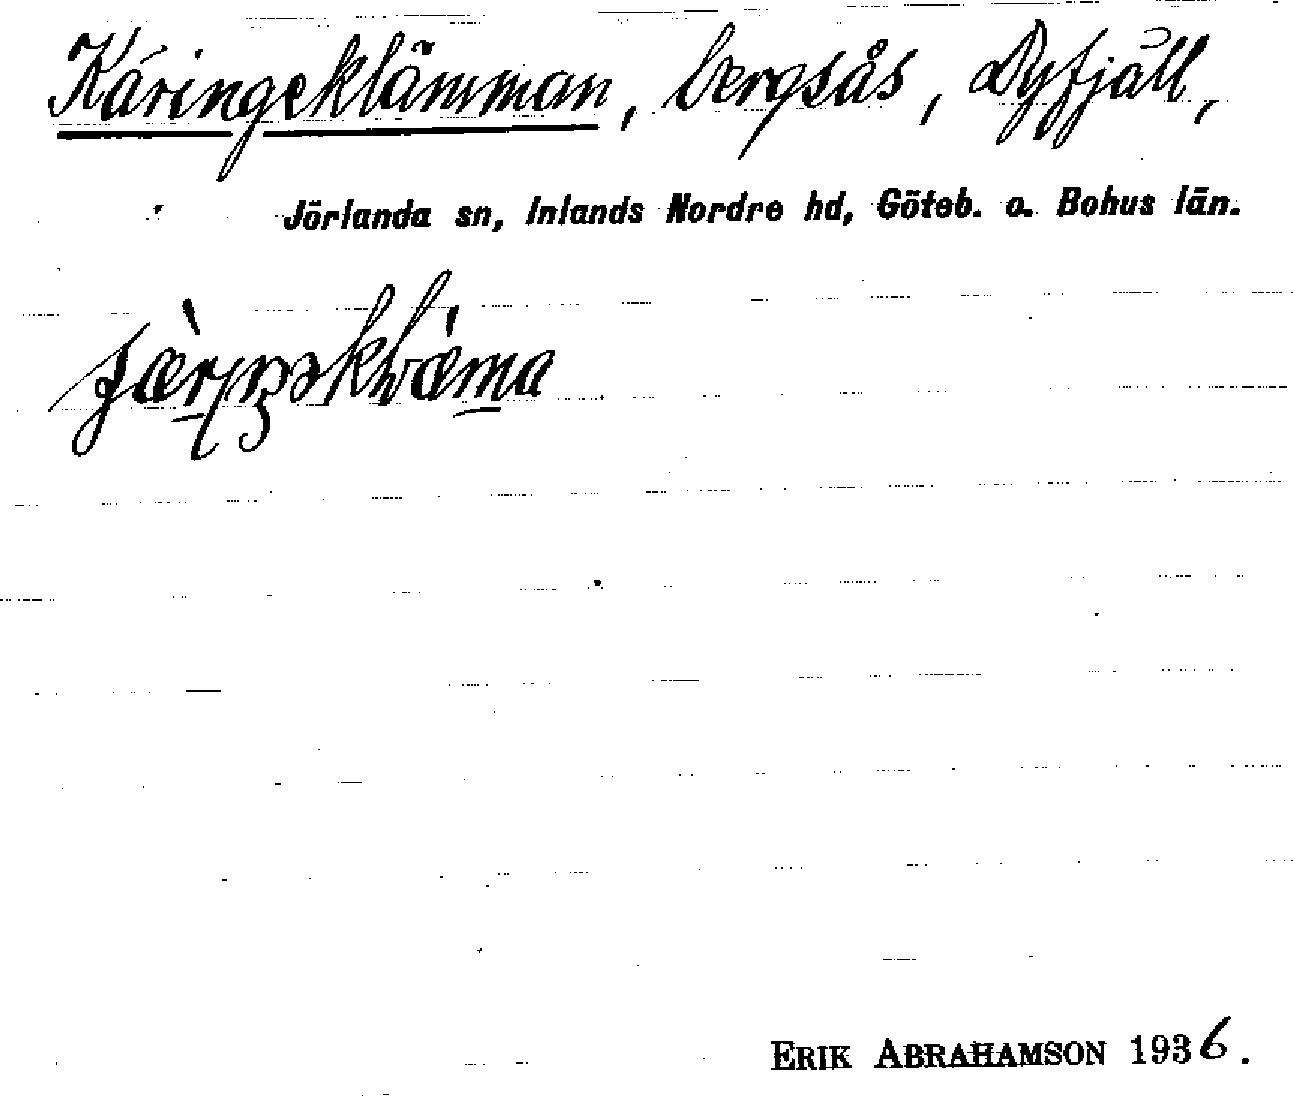 Käringeklämman, bergsås, Dyfjäll,
Jörlanda sn, Inlands Nordre hd, Göteb. o. Bohus län.
ERIK ABRAHAMSON 1936.